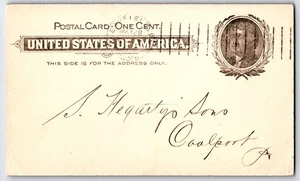 POSTAL CARD - ONE CENT.
UNITED STATES OF AMERICA.
THIS SIDE IS FOR THE ADDRESS ONLY.
S. Hegarty's Sons
Coalport